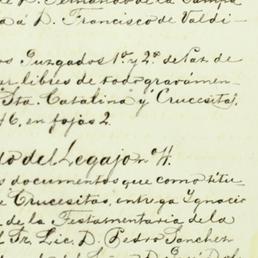 de D. Fernando de la Campa
a á D. Francisco de Valdi-
os Juzgados 1o. y 2o. de Paz de
ar libres de todo gravámen
Sta. Catalina y Crucesitas,
46, en fojas 2.
do del Legajo n. 4.
s documentos que constitu
e Crucesitas, entrega Ygnacio
de la Testamentaria de la
l Sr. Lic. D. Pedro Sanchez